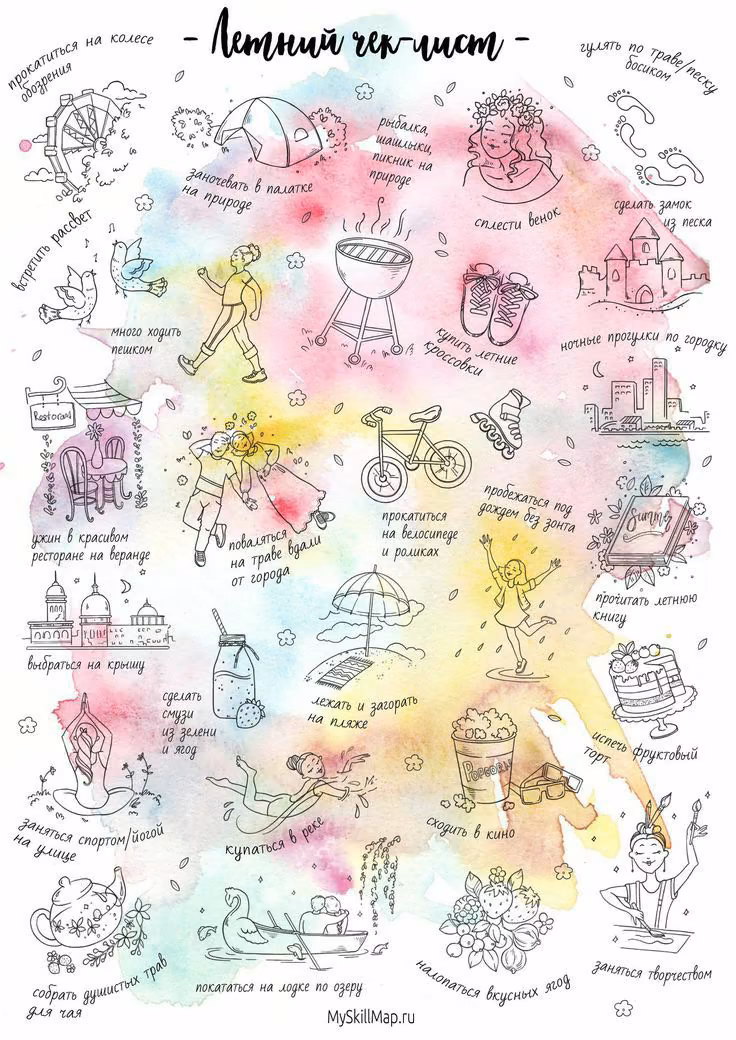 - Летний чек-лист -
прокатиться на колесе
обозрения
заночевать в палатке
на природе
рыбалка,
шашлыки,
пикник на
природе
сплести венок
гулять по траве/песку
босиком
сделать замок
из песка
встретить рассвет
много ходить
пешком
купить летние
кроссовки
ночные прогулки по городку
Restoraunt
ужин в красивом
ресторане на веранде
поваляться
на траве вдали
от города
прокатиться
на велосипеде
и роликах
пробежаться под
дождем без зонта
Summer
прочитать летнюю
книгу
выбраться на крышу
сделать
смузи
из зелени
и ягод
лежать и загорать
на пляже
испечь фруктовый
торт
заняться спортом/йогой
на улице
купаться в реке
POPCORN
сходить в кино
собрать душистых трав
для чая
покататься на лодке по озеру
налопаться вкусных ягод
заняться творчеством
MySkillMap.ru